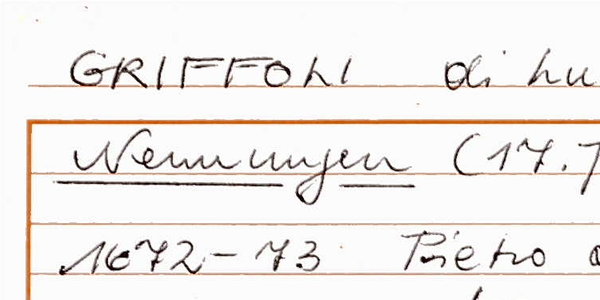 GRIFFOLI di Lu
Nennungen (17.
1672-73 Pietro